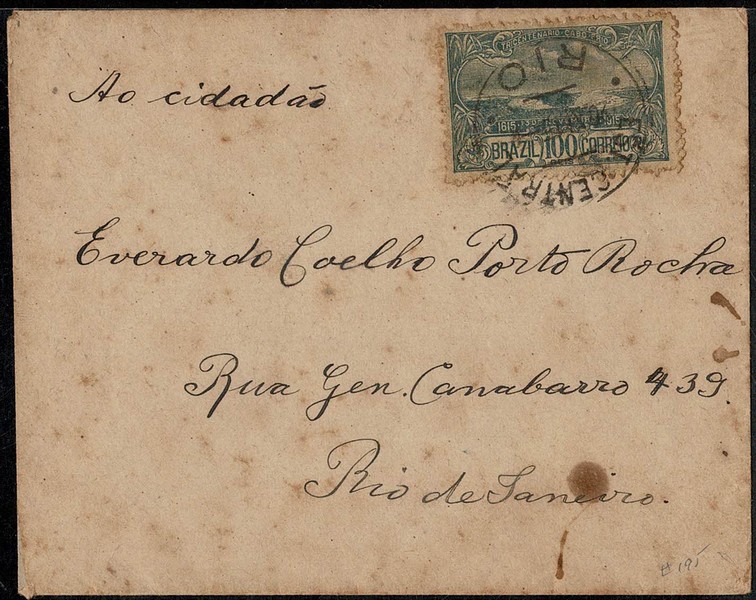 TRICENTENARIO-CABO-FRIO
1615 1915
BRAZIL 100 CORREIO
RIO
CENTRAL
Ao cidadão
Everardo Coelho Porto Rocha
Rua Gen. Canabarro 439.
Rio de Janeiro.
#195